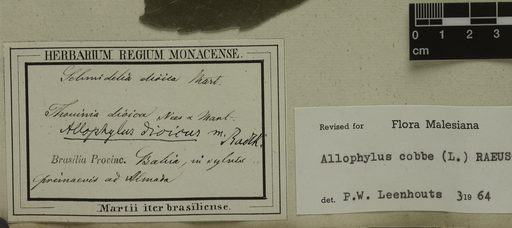 HERBARIUM REGIUM MONACENSE.
Schmidelia dioica Mart.
Thouinia dioica Nees & Mart.
Allophylus dioicus m. Radlk.
Brasilia Provinc. Bahia, in sylvis
ad Almada
Martii iter brasiliense.
0 1 2
cm
Revised for Flora Malesiana
Allophylus cobbe (L.) RAEUS
det. P.W. Leenhouts 3 1964